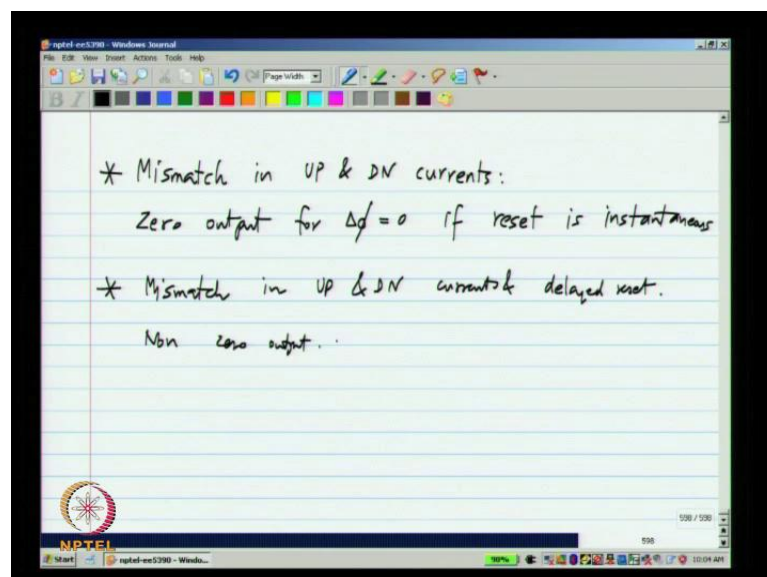 nptel-ee5390 - Windows Journal
File Edit View Insert Actions Tools Help
Page Width
B I
* Mismatch in UP & DN currents:
Zero output for Δφ = 0 if reset is instantaneous
* Mismatch in UP & DN currents & delayed reset.
Non zero output.
598 / 598
598
NPTEL
Start nptel-ee5390 - Windo... 90% 10:04 AM